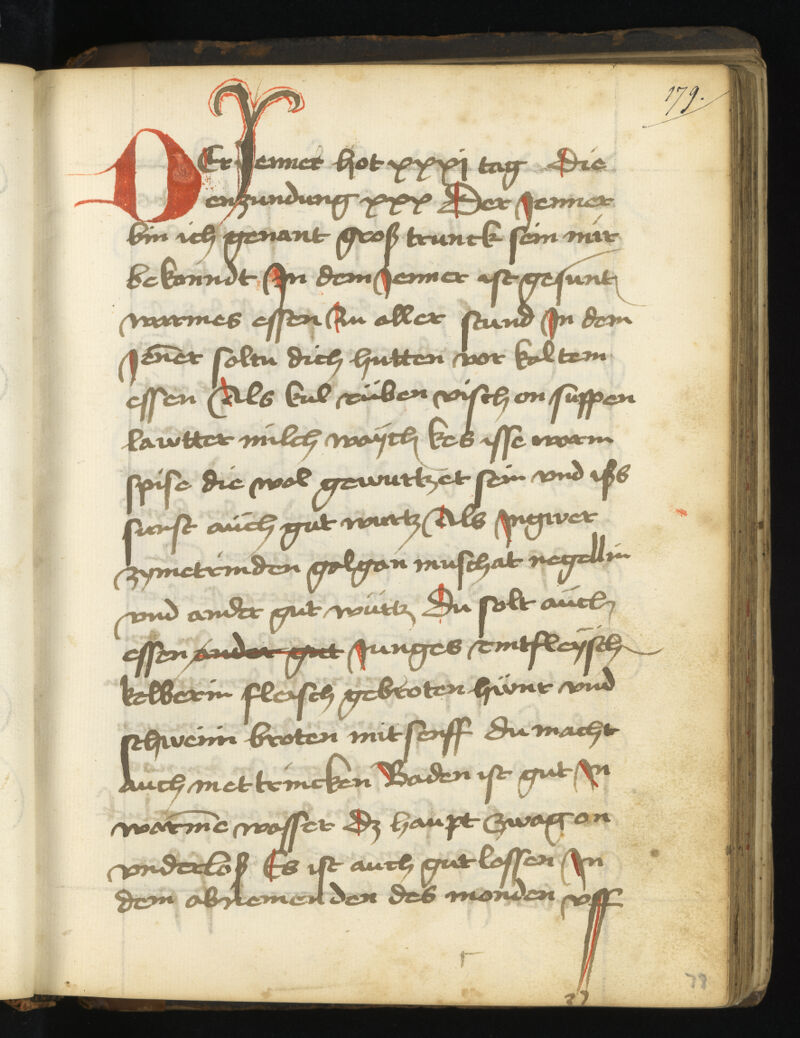 179.
DEr Jenner hot xxxj tag Die
enzundung xxx Der Jenner
bin ich genant groß trunck sein mir
bekanndt In dem Jenner ist gesunt
warmes essen Zu aller stund In dem
Jen̄er soltu dich hutten vor kaltem
essen Als kul rüben visch on suppen
lawtter milch waÿch kes isse warm
spise die wol gewurtzet sein vnd iß
sunst aüch gut wurtz Als Ingwer
zymetrinden galgan muschat negellin
vnd ander gut würtz Du solt aüch
essen ander gut Junges rintfleÿsch
kelberin fleisch gebroten hünr vnd
schweinin broten mit senff du macht
auch met trincken Baden ist gut In
warm̄e wasser Dz haupt zwag on
vnderloß Es ist auch gut lossen In
dem abnemenden des monden vff
78